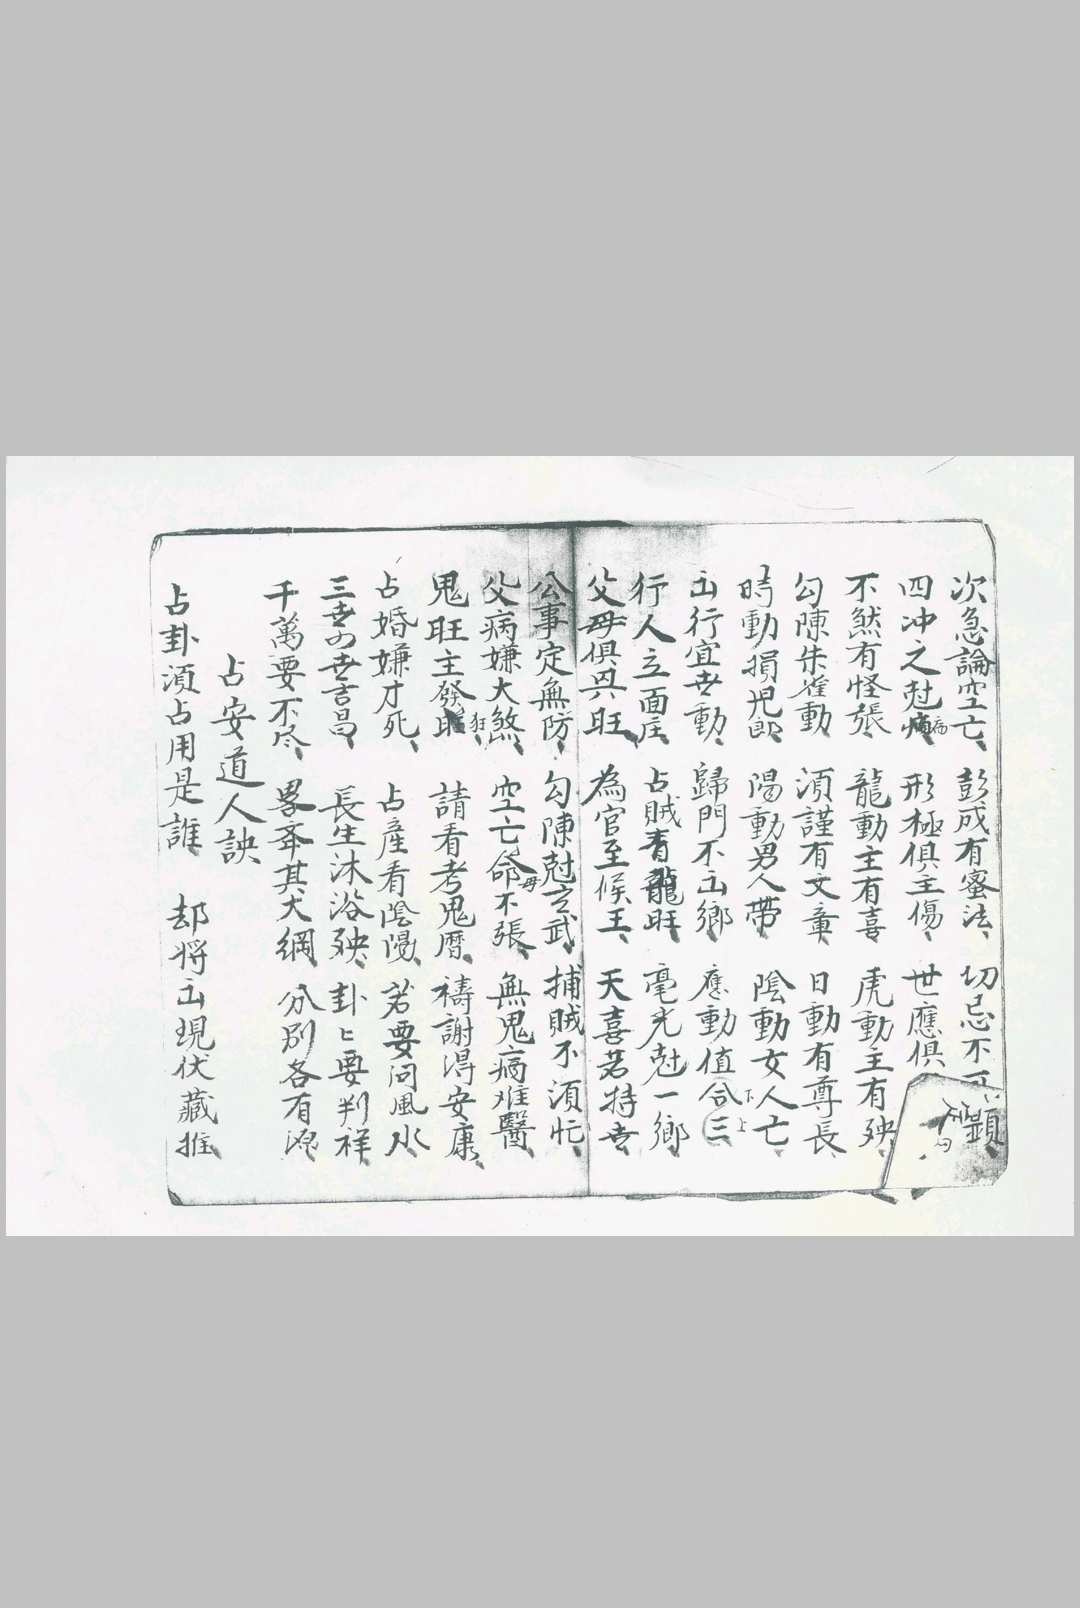 次急論空亡、彭成有蜜法、切忌不
四冲之尅病、形極俱主傷、世應俱
不然有怪張、龍動主有喜虎動主有殃、
勾陳朱雀動須謹有文章、日動有尊長
時動損児郎、陽動男人帶、陰動女人亡、
出行宜世動、歸門不出鄉、應動值合三
行人立面庄、占賊青龍旺、毫光尅一鄉
父母俱興旺、為官至候王、天喜若持世
公事定無防、勾陳尅玄武、捕賊不須忙、
父病嫌大煞、空亡命不張、無鬼病难醫、
鬼旺主發狂、請看考鬼暦、禱謝淂安康、
占婚嫌才死、占產看陰陽、若要问風水、
三世四世吉昌、長生沐浴殃、卦〻要判祥、
千萬要不尽、畧奔其大綱、分别各有源、
占安道人訣
占卦須占用是誰、却将出現伏藏推、